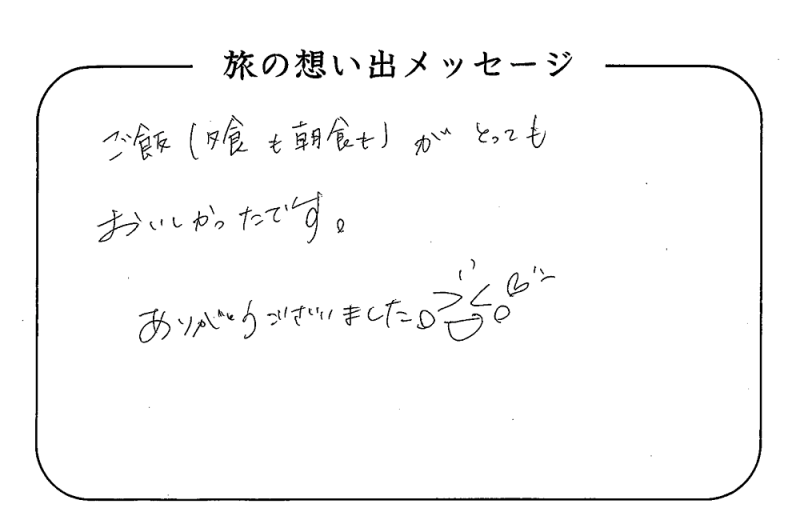 旅の想い出メッセージ
ご飯(夕食も朝食も)が とっても
おいしかったです。
ありがとうございました。